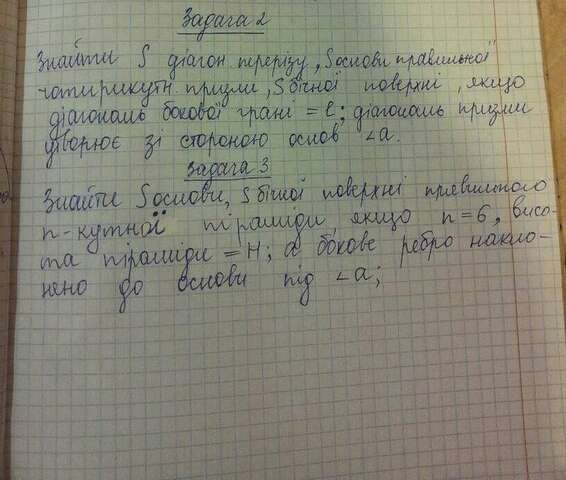 Задача 2
Знайти S діагон. перерізу, S основи правильної
чотирикутн. призми, S бічної поверхні, якщо
діагональ бокової грані = l; діагональ призми
утворює зі стороною основ ∠a.
Задача 3
Знайти S основи, S бічної поверхні правильного
n-кутної піраміди, якщо n=6, висо-
та піраміди = H; а бокове ребро накло-
нено до основи під ∠a;